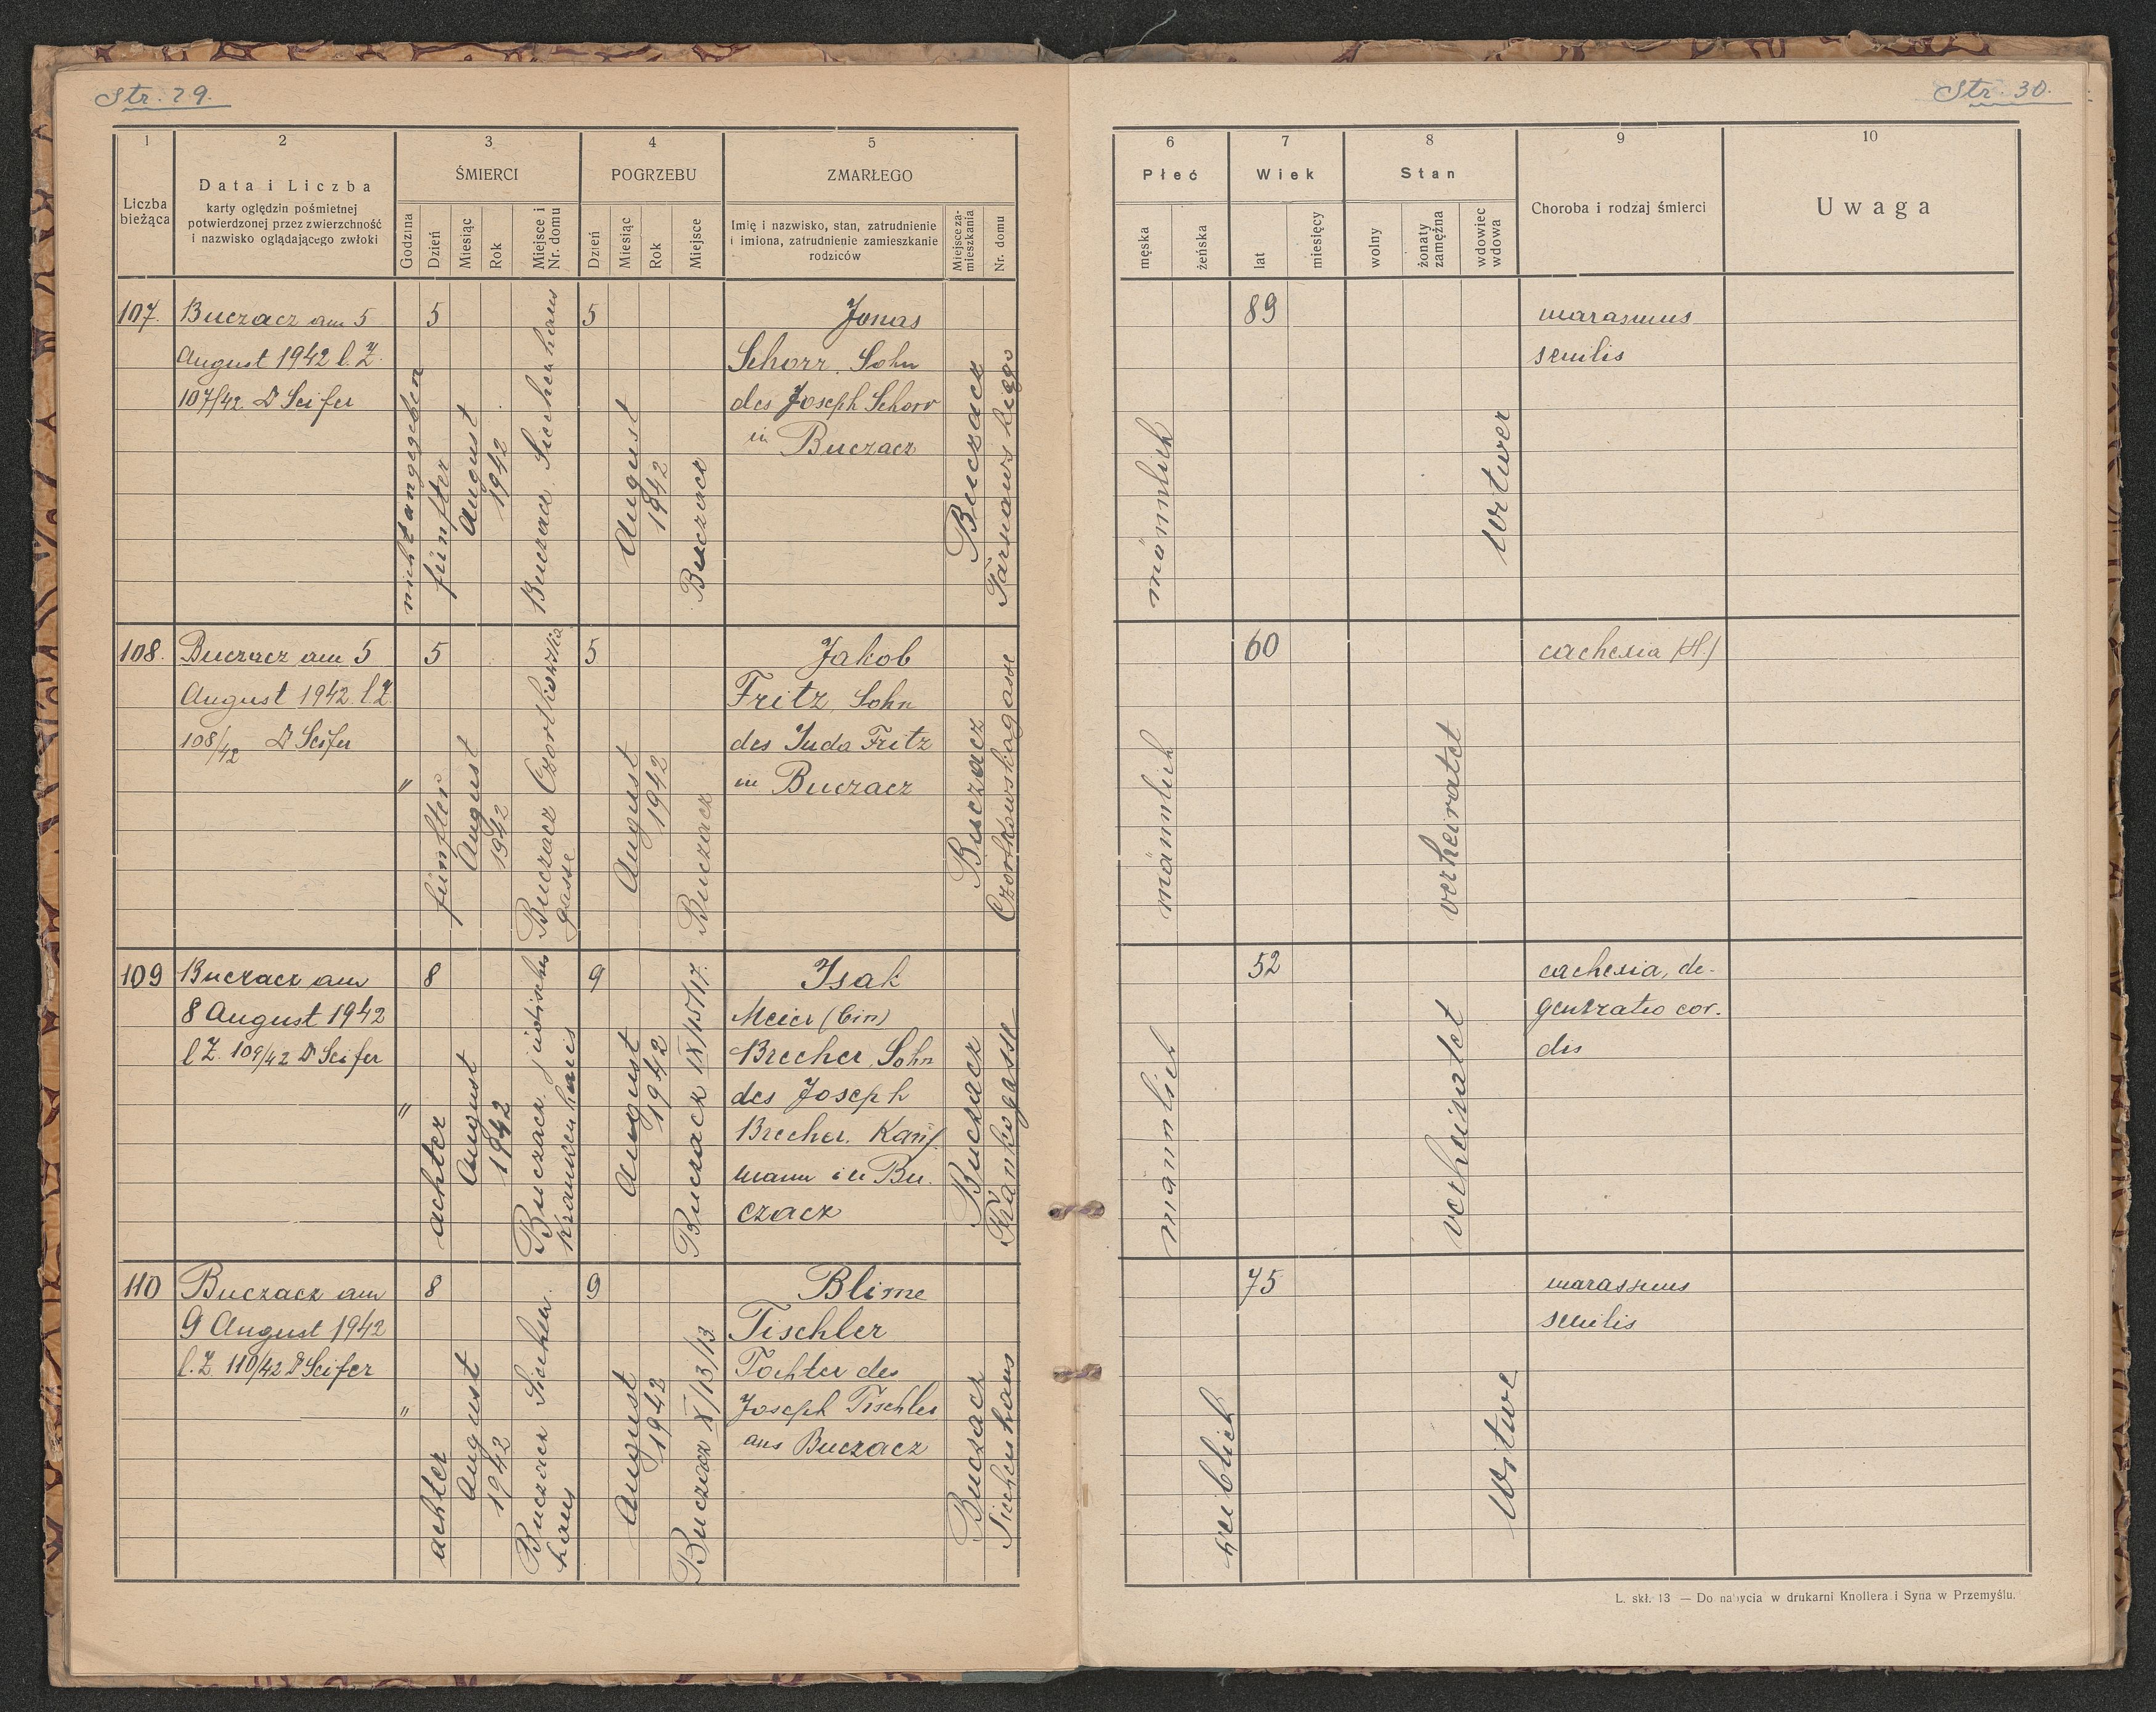 Str. 29.
1
2
3
4
5
Liczba bieżąca
Data i Liczba
karty oględzin pośmietnej
potwierdzonej przez zwierzchność
i nazwisko oglądającego zwłoki
ŚMIERCI
Godzina
Dzień
Miesiąc
Rok
Miejsce i
Nr. domu
POGRZEBU
Dzień
Miesiąc
Rok
Miejsce
ZMARŁEGO
Imię i nazwisko, stan, zatrudnienie
i imiona, zatrudnienie zamieszkanie
rodziców
Miejsce za-
mieszkania
Nr. domu
107.
Buczacz am 5
August 1942 l. Z.
107/42. Dr Seifer
nicht angegeben
5
fünfter
August
1942
Buczacz Siechenhaus
5
August
1942
Buczacz
Jonas
Schorr, Sohn
des Joseph Schorr
in Buczacz
Buczacz
108.
Buczacz am 5
August 1942. l. Z.
108/42 Dr Seifer
"
5
fünfter
August
1942
Buczacz Czortkowska
gasse
5
August
1942
Buczacz
Jakob
Fritz, Sohn
des Juda Fritz
in Buczacz
Buczacz
Czortkowskagasse
109
Buczacz am
8 August 1942
l Z. 109/42 Dr Seifer
"
8
achter
August
1942
Buczacz, jüdisches
Krankenhaus
9
August
1942
Buczacz IX/15/17.
Isak
Meier (bin)
Brecher, Sohn
des Joseph
Brecher. Kauf
mann in Bu.
czacz
Buczacz
110
Buczacz am
9 August 1942
l. Z. 110/42 Dr Seifer
"
8
achter
August
1942
Buczacz Siechen.
haus
9
August
1942
Buczacz X/13/13
Blime
Tischler
Tochter des
Joseph Tischler
aus Buczacz
Buczacz
Siechenhaus
Str. 30.
6
7
8
9
10
Płeć
męska
żeńska
Wiek
lat
miesięcy
Stan
wolny
żonaty
zamężna
wdowiec
wdowa
Choroba i rodzaj śmierci
Uwaga
männlich
89
Witwer
marasmus
senilis
männlich
60
verheiratet
cachexia
männlich
52
verheiratet
cachexia, de-
generatio cor.
dis
weiblich
75
Witwe
marasmus
senilis
L. skł. 13 — Do nabycia w drukarni Knollera i Syna w Przemyślu.